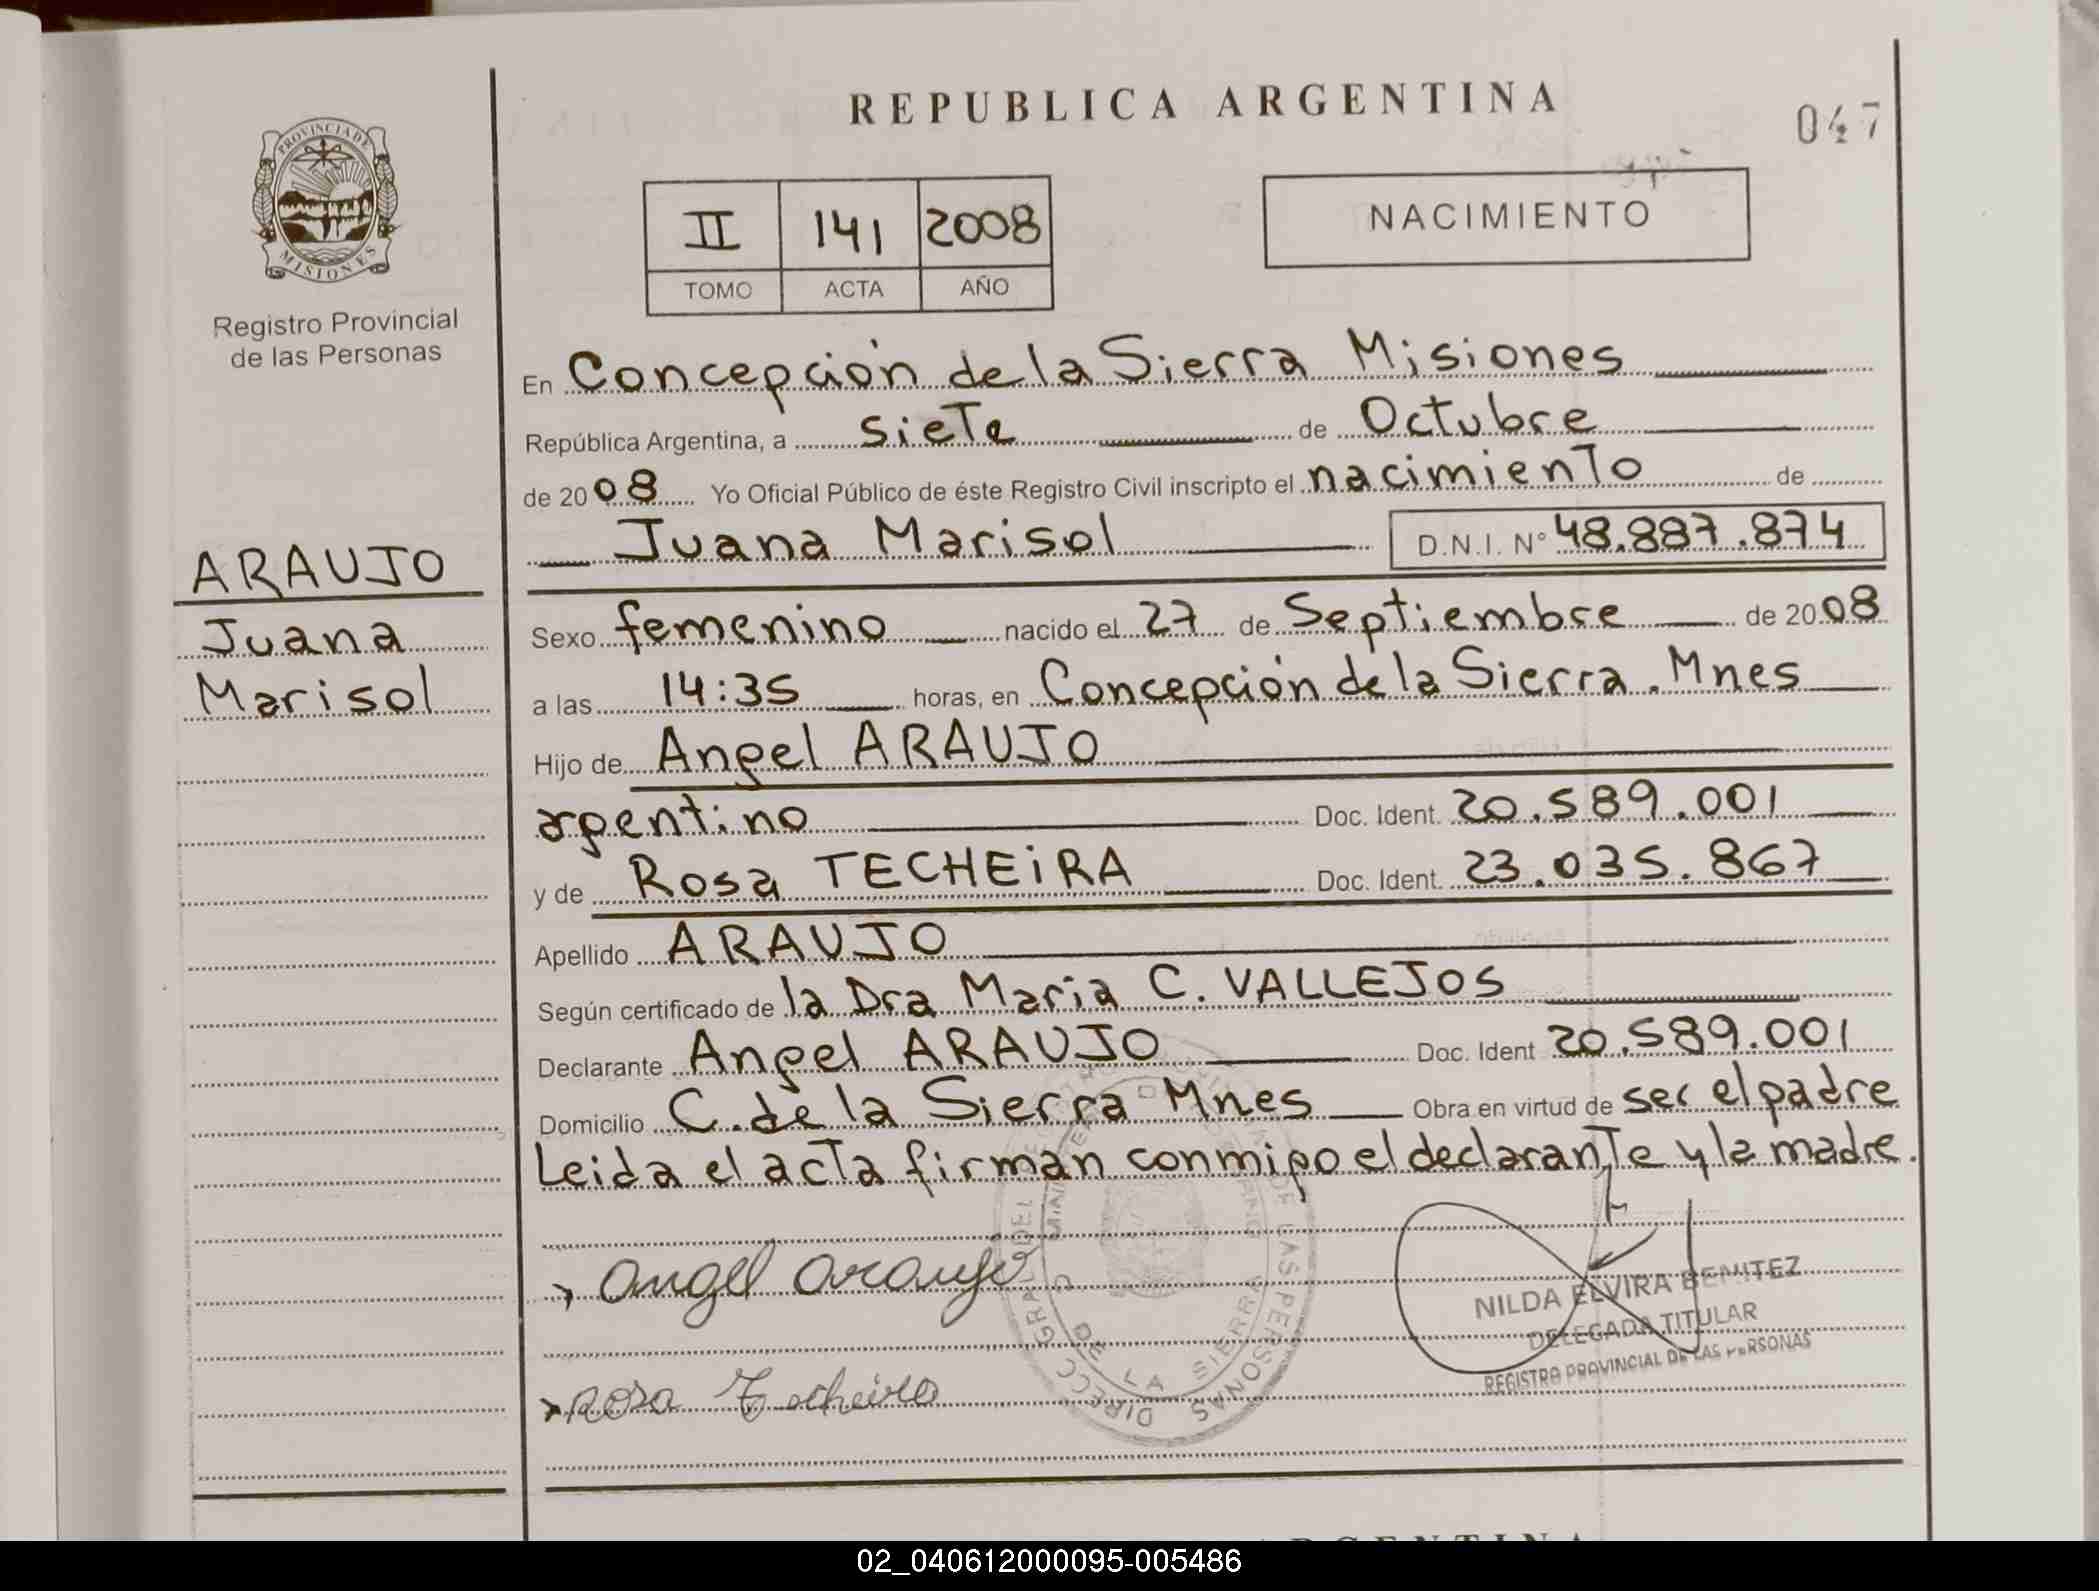 REPUBLICA ARGENTINA
047
PROVINCIA DE
MISIONES
Registro Provincial
de las Personas
II 141 2008
TOMO ACTA AÑO
NACIMIENTO
En Concepción de la Sierra Misiones
República Argentina, a siete de Octubre
de 2008 Yo Oficial Público de éste Registro Civil inscripto el nacimiento de
Juana Marisol D.N.I. Nº 48.887.874
ARAUJO
Juana
Marisol
Sexo femenino nacido el 27 de Septiembre de 2008
a las 14:35 horas, en Concepción de la Sierra. Mnes
Hijo de Angel ARAUJO
argentino Doc. Ident. 20.589.001
y de Rosa TECHEiRA Doc. Ident. 23.035.867
Apellido ARAUJO
Según certificado de la Dra Maria C. VALLEJOS
Declarante Angel ARAUJO Doc. Ident 20.589.001
Domicilio C. de la Sierra Mnes Obra en virtud de ser el padre
Leida el acta firman conmigo el declarante y la madre.
angel araujo
NILDA ELVIRA BENITEZ
DELEGADA TITULAR
REGISTRO PROVINCIAL DE LAS PERSONAS
rosa Techeira
DE LA SIERRA
DE LAS PERSONAS
02_040612000095-005486